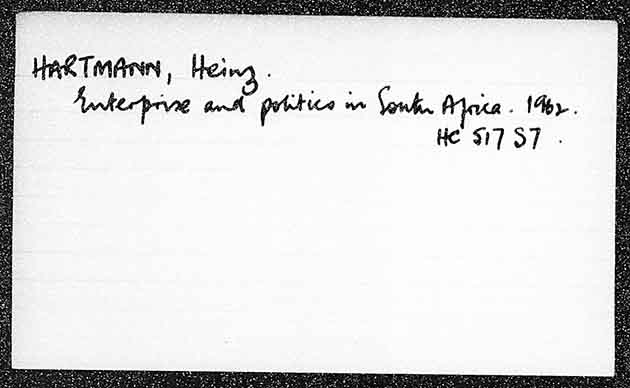 HARTMANN, Heinz.
Enterprise and politics in South Africa. 1962.
HC 517 S7.